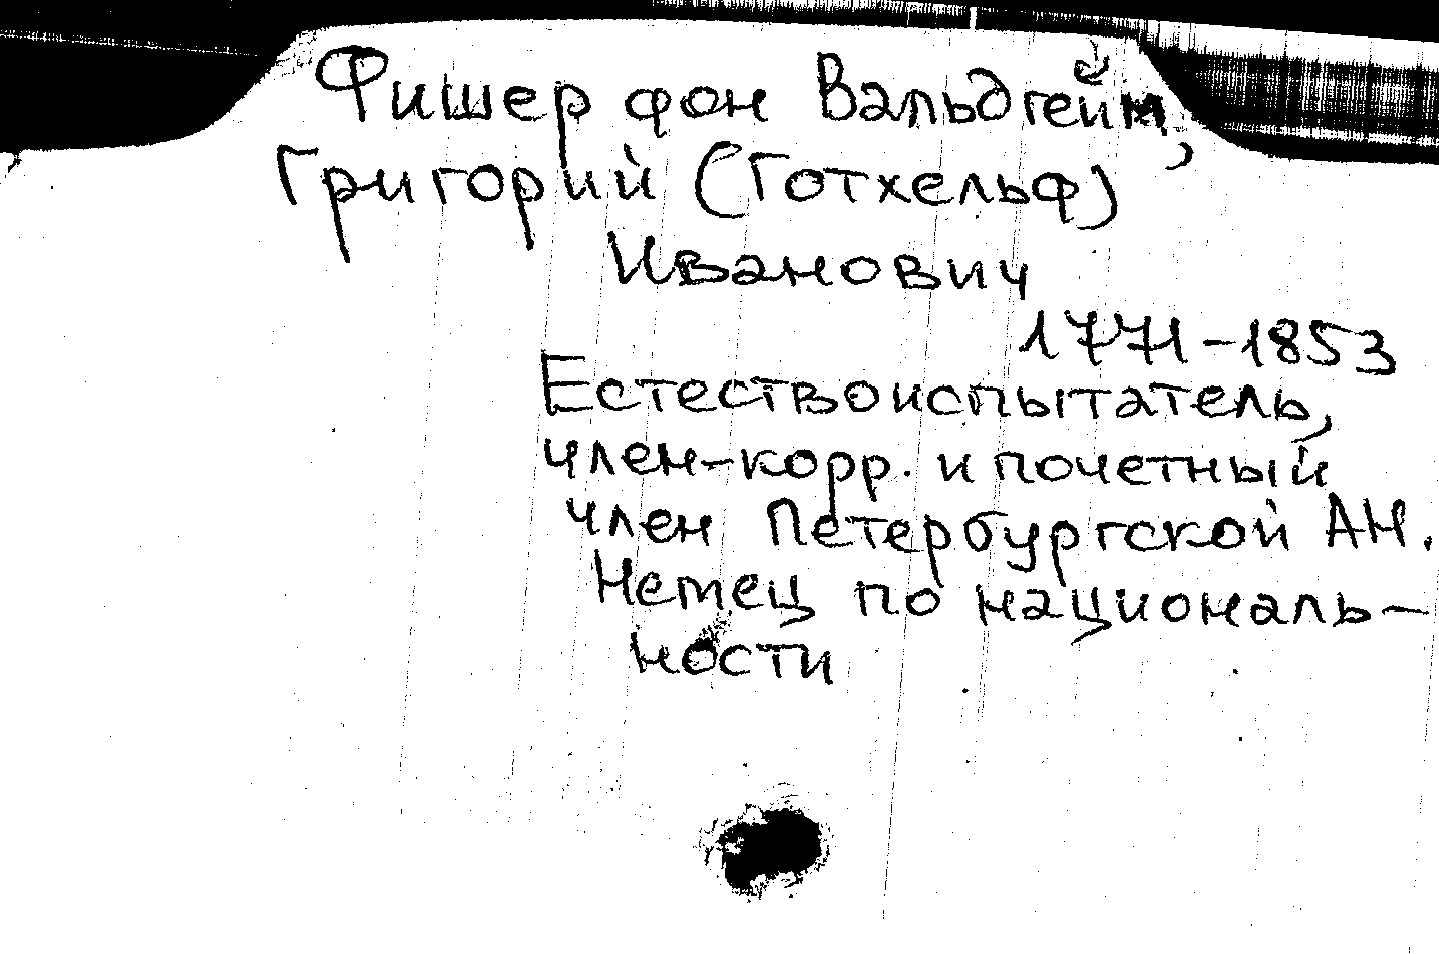 Фишер фон Вальдгейм,
Григорий (Готхельф)
Иванович
1771-1853
Естествоиспытатель,
член-корр. и почетный
член Петербургской АН.
Немец по националь-
ности